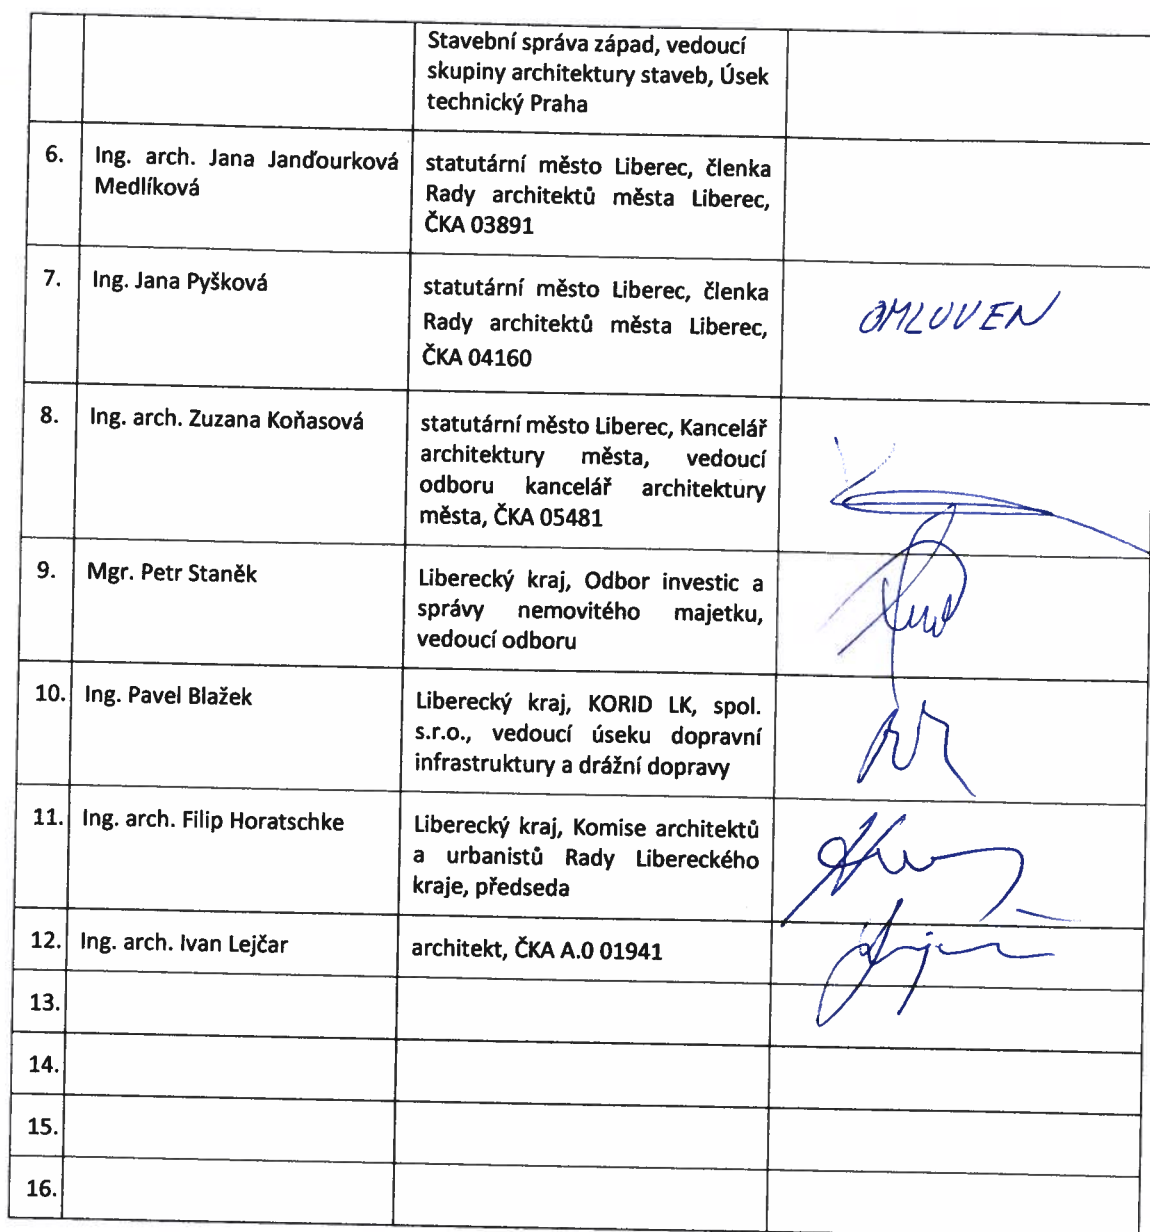 Stavební správa západ, vedoucí
skupiny architektury staveb, Úsek
technický Praha
6.
Ing. arch. Jana Janďourková
Medlíková
statutární město Liberec, členka
Rady architektů města Liberec,
ČKA 03891
7.
Ing. Jana Pyšková
statutární město Liberec, členka
Rady architektů města Liberec,
ČKA 04160
OMLUVEN
8.
Ing. arch. Zuzana Koňasová
statutární město Liberec, Kancelář
architektury města, vedoucí
odboru kancelář architektury
města, ČKA 05481
9.
Mgr. Petr Staněk
Liberecký kraj, Odbor investic a
správy nemovitého majetku,
vedoucí odboru
10.
Ing. Pavel Blažek
Liberecký kraj, KORID LK, spol.
s.r.o., vedoucí úseku dopravní
infrastruktury a drážní dopravy
11.
Ing. arch. Filip Horatschke
Liberecký kraj, Komise architektů
a urbanistů Rady Libereckého
kraje, předseda
12.
Ing. arch. Ivan Lejčar
architekt, ČKA A.0 01941
13.
14.
15.
16.